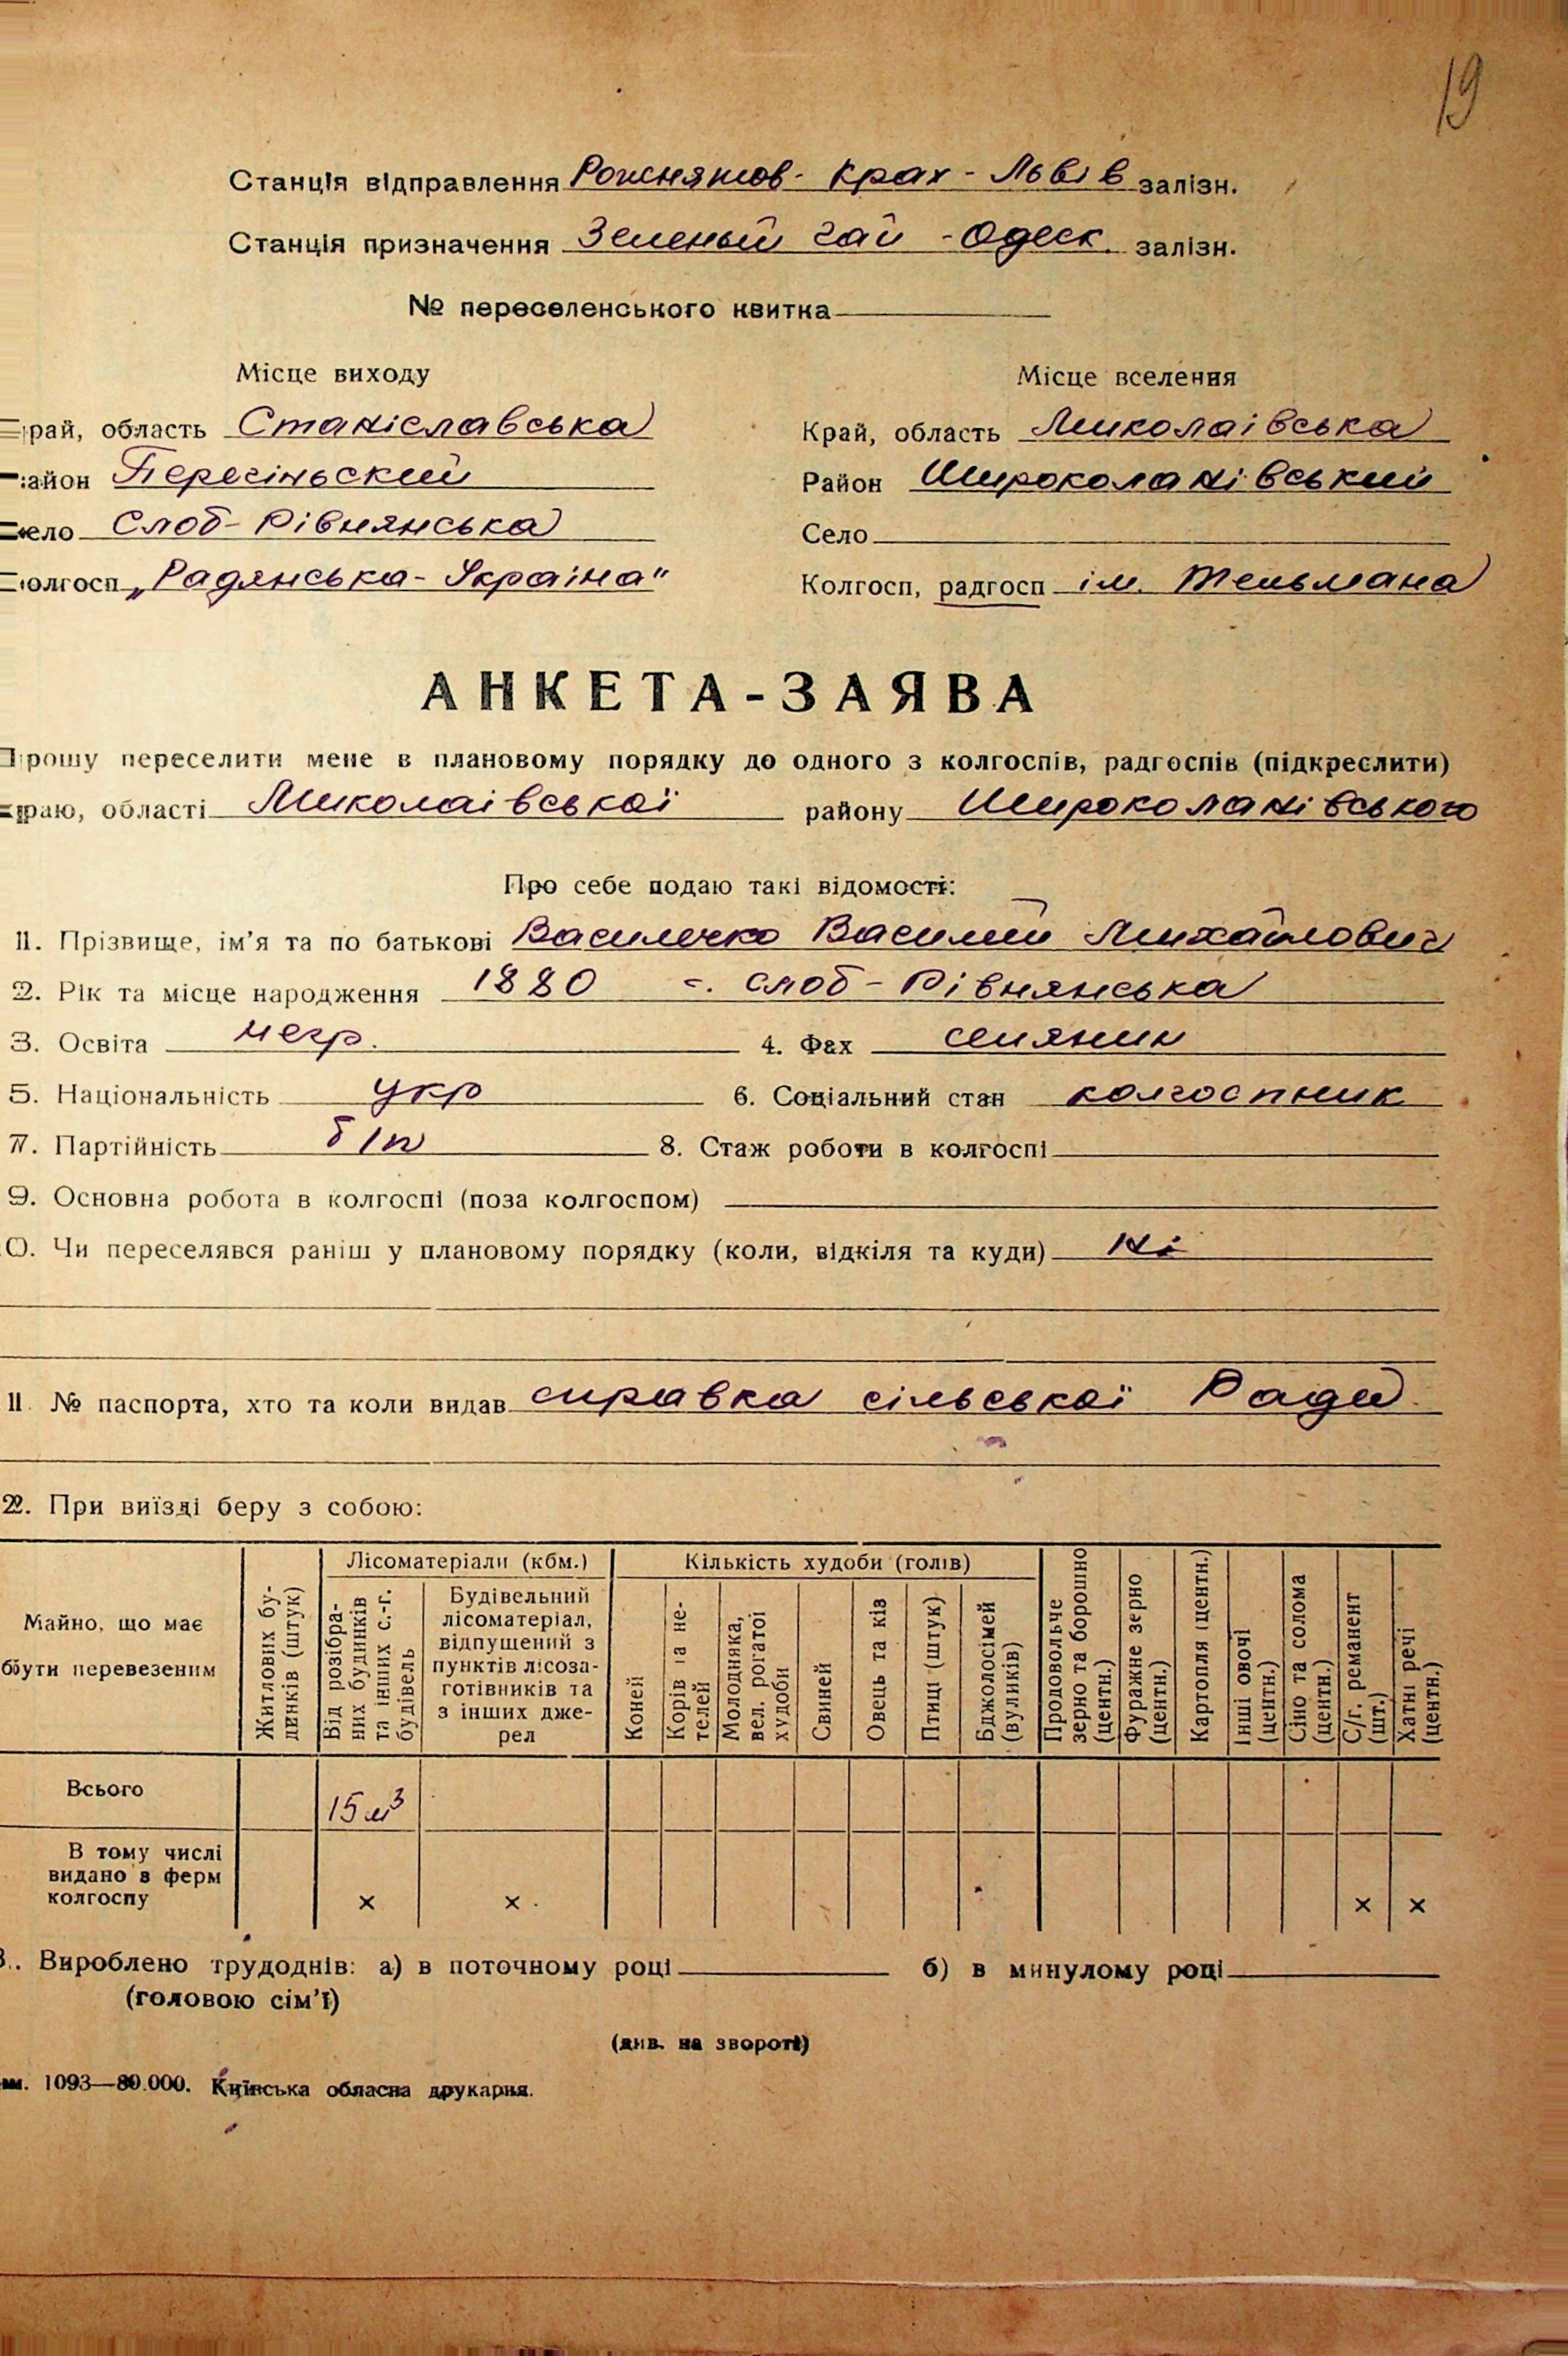 19
Станція відправлення Рожнятов- Крах - Львів залізн.
Станція призначення Зеленый гай - Одеск. залізн.
№ переселенського квитка
Місце виходу
Місце вселения
рай, область Станіславська
Край, область Миколаівська
айон Перегіньский
Район Широколанівський
ело Слоб-Рівнянська
Село
олгосп „Радянська-Україна"
Колгосп, радгосп ім. Тельмана
АНКЕТА-ЗАЯВА
Прошу переселити мене в плановому порядку до одного з колгоспів, радгоспів (підкреслити)
краю, області Миколаівської району Широколанівського
Про себе подаю такі відомості:
11. Прізвище, ім'я та по батькові Василечко Василий Михайлович
2. Рік та місце народження 1880 с. Слоб-Рівнянська
3. Освіта негр. 4. Фах селянин
5. Національність укр 6. Соціальний стан колгоспник
7. Партійність б/п 8. Стаж роботи в колгоспі
9. Основна робота в колгоспі (поза колгоспом)
0. Чи переселявся раніш у плановому порядку (коли, відкіля та куди) ні
11. № паспорта, хто та коли видав справка сільської Ради
22. При виїзді беру з собою:
Майно, що має бути перевезеним
Житлових будинків (штук)
Лісоматеріали (кбм.)
Від розібраних будинків та інших с.-г. будівель
Будівельний лісоматеріал, відпущений з пунктів лісозаготівників та з інших джерел
Кількість худоби (голів)
Коней
Корів та нетелей
Молодняка, вел. рогатої худоби
Свиней
Овець та ків
Птиці (штук)
Бджолосімей (вуликів)
Продовольче зерно та борошно (центн.)
Фуражне зерно (центн.)
Картопля (центн.)
Інші овочі (центн.)
Сіно та солома (центн.)
С/г. реманент (шт.)
Хатні речі (центн.)
Всього 15 м³
В тому числі видано в ферм колгоспу × × × ×
3. Вироблено трудоднів: а) в поточному році б) в минулому році
(головою сім'ї)
(див. на звороті)
ам. 1093—80.000. Київська обласна друкарня.